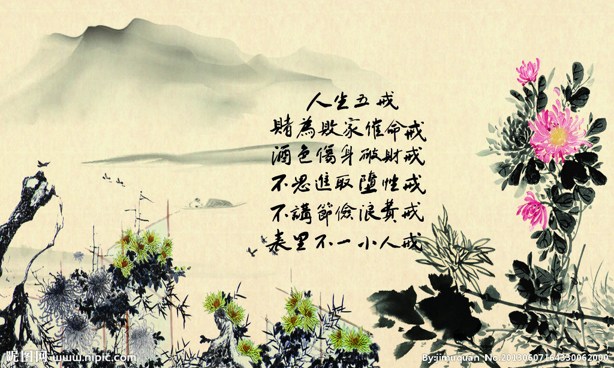 人生五戒
賭為敗家催命戒
酒色傷身破財戒
不思進取墮性戒
不講節儉浪費戒
表里不一小人戒
昵图网 www.nipic.com
By:jimuquan No:20130607164330062000